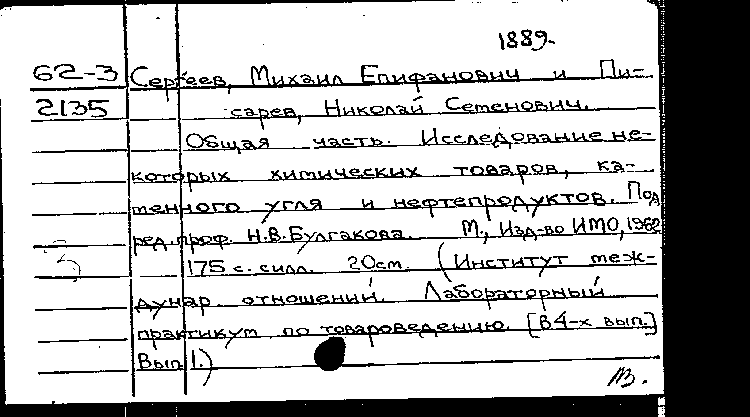 1889.
62-3 Сергеев, Михаил Епифанович и Пи-
2135 сарев, Николай Семенович.
Общая часть. Исследование не-
которых химических товаров, ка-
менного угля и нефтепродуктов. Под
ред. проф. Н.В.Булгакова. М., Изд-во ИМО, 1962
175 с. с илл. 20см. (Институт меж-
дунар. отношений. Лабораторный
практикум по товароведению. [В 4-х вып.]
Вып. 1.)